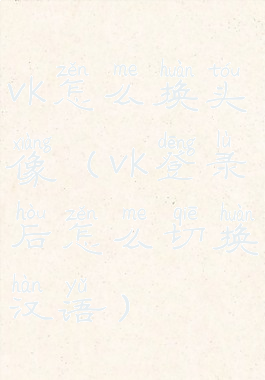 zěn me huàn tóu
VK怎么换头
xiàng dēng lù
像（VK登录
hòu zěn me qiē huàn
后怎么切换
hàn yǔ
汉语）